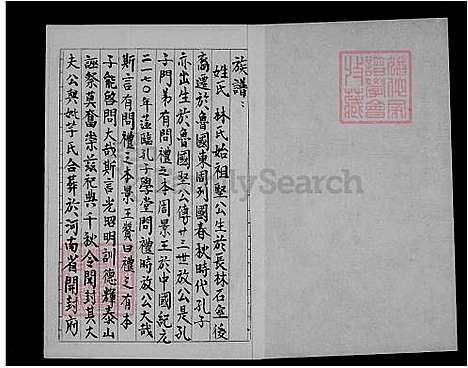 族譜：
姓氏　林氏始祖堅公生於長林石室後
裔遷於魯國東周列國春秋時代孔子
亦出生於魯國堅公傳廿三世放公是孔
子門弟有問禮之本周景王於中國紀元
二一七〇年蒞臨孔子學堂問禮時放公大哉
斯言有問禮之本景王贊曰禮之有本
子能啓問大哉斯言光昭明訓德輝泰山
誣祭莫奮崇茲祀典千秋令聞封其大
夫公與妣芋氏合葬於河南省開封府
FamilySearch